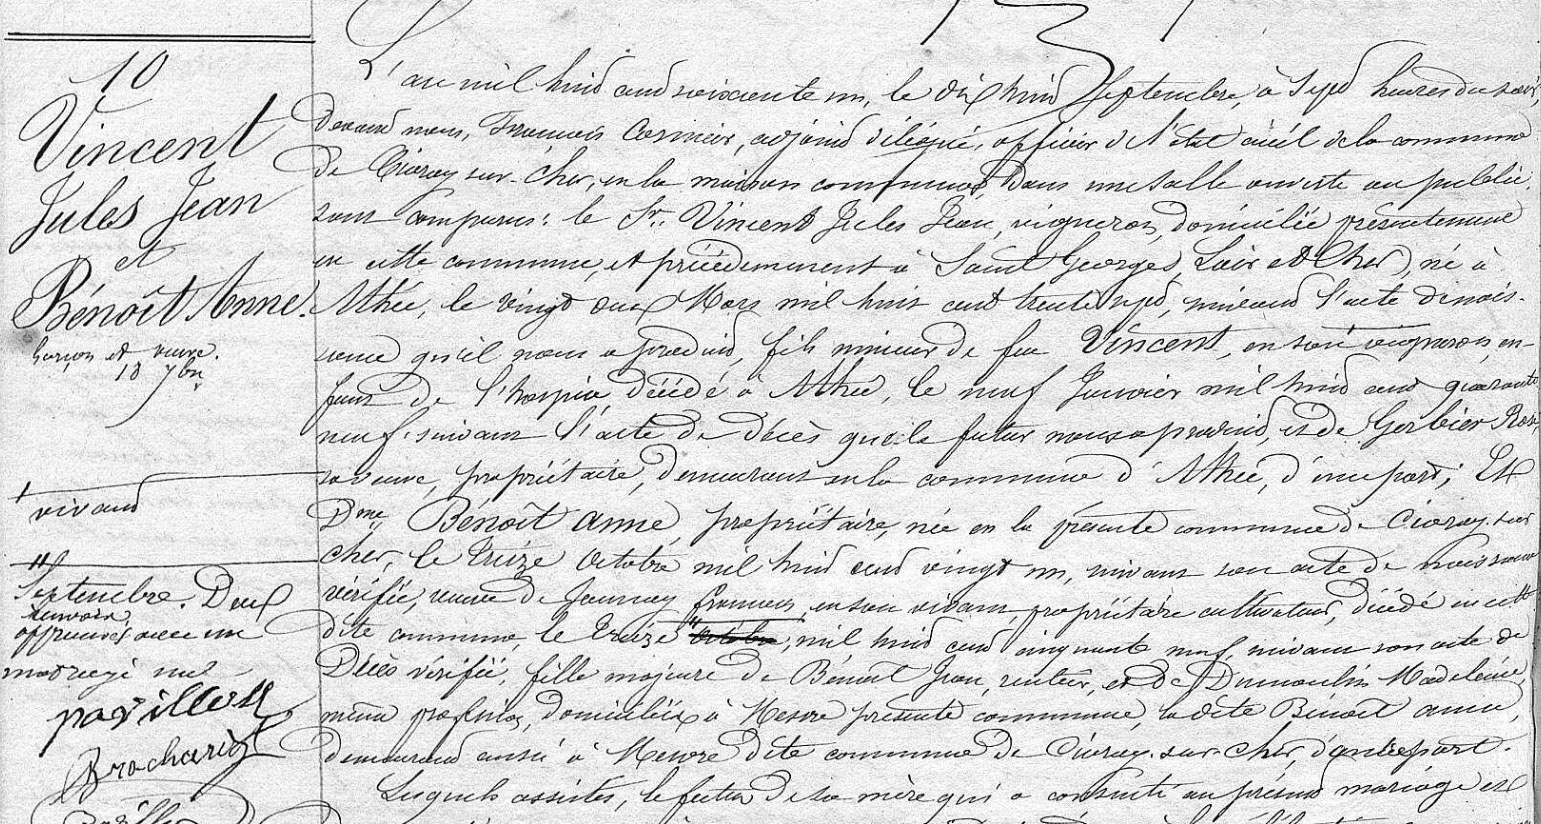 10
Vincent
Jules Jean
et
Bénoît Anne.
Garçon et veuve.
18 7bre
vivant
Septembre. Deux
renvois
approuvés avec un
mot rayé nul
pavillon
Brochariot
L'an mil huit cent soixante un, le dix huit Septembre, à Sept heures du soir,
devant nous, François Cormier, adjoint délégué, officier de l'état civil de la commune
de Civray sur-Cher, en la maison commune, dans une salle ouverte au public,
sont comparus: le Sr. Vincent Jules Jean, vigneron, domicilié présentement
en cette commune, et précédemment à Saint Georges, Loir et Cher, né à
Athée, le vingt deux Mars mil huit cent trente sept, suivant l'acte de nais-
sance qu'il nous a produit, fils mineur de feu Vincent, en son vigneron, en-
fant de l'hospice décédé à Athée, le neuf Janvier mil huit cent quarante
neuf, suivant l'acte de décès que le futur nous a produit, et de Gerbier Rose,
sa veuve, propriétaire, demeurant en la commune d'Athée, d'une part; Et
Dme Bénoît Anne, propriétaire, née en la présente commune de Civray-sur
Cher, le treize Octobre mil huit cent vingt un, suivant son acte de naissance
vérifié, veuve de Jaunay françois, en son vivant, propriétaire cultivateur, décédé en cette
dite commune, le treize octobre, mil huit cent cinquante neuf, suivant son acte de
Décès vérifié, fille majeure de Bénoit Jean, rentier, et de Dumoulin Madeleine,
même profession, domiciliés à Mesvre présente commune, la dite Bénoît anne,
demeurant aussi à Mesvre dite commune de Civray-sur Cher, d'autre part.
Lesquels assistés, le futur de sa mère qui a consenti au présent mariage et